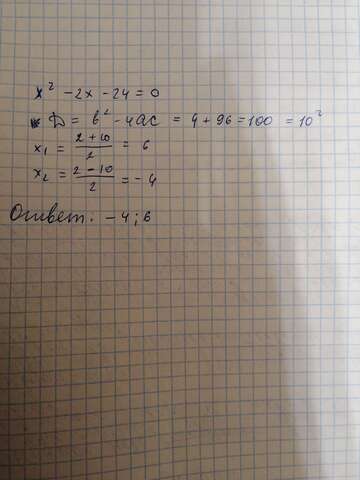 x² - 2x - 24 = 0
D = b² - 4ac = 4 + 96 = 100 = 10²
x₁ = (2 + 10)/2 = 6
x₂ = (2 - 10)/2 = -4
Ответ: -4; 6